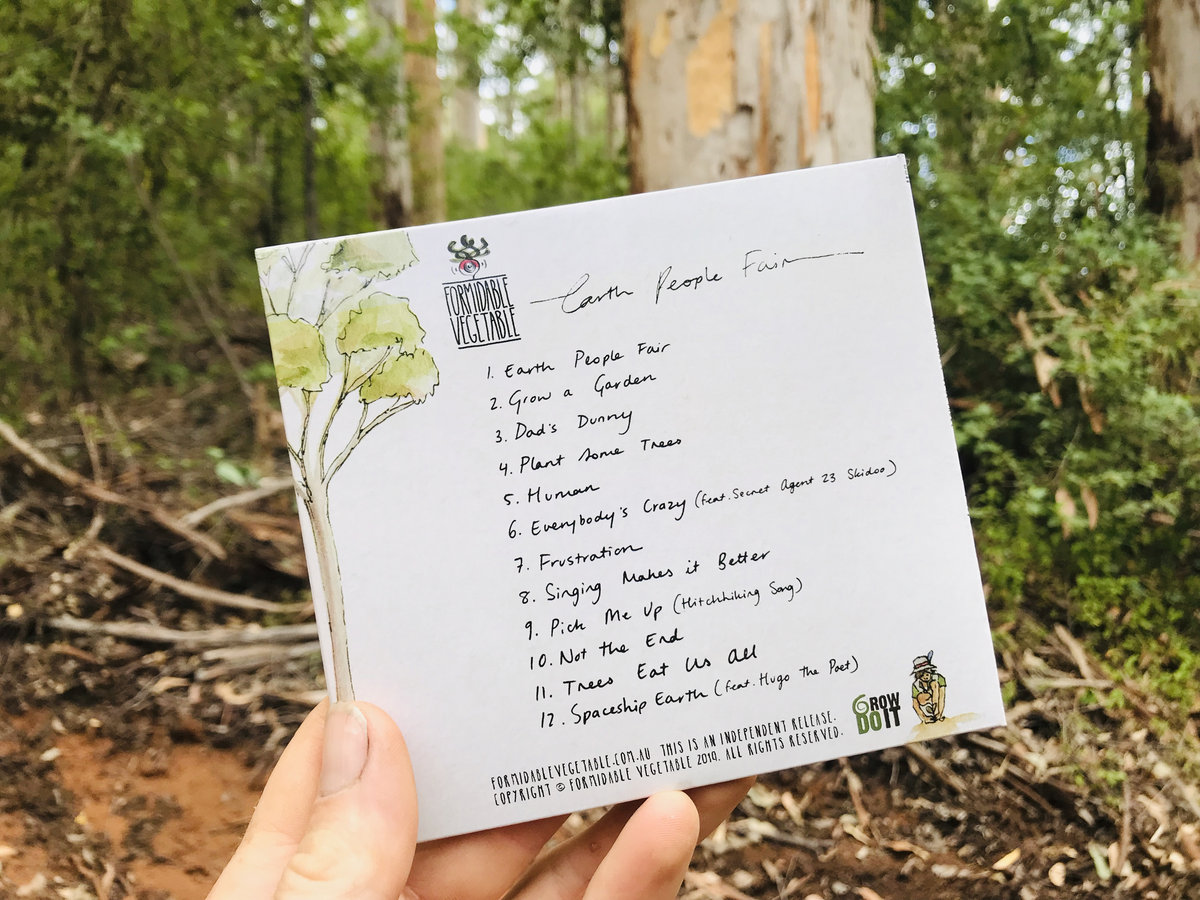 FORMIDABLE
VEGETABLE
Earth People Fair
1. Earth People Fair
2. Grow a Garden
3. Dad's Dunny
4. Plant Some Trees
5. Human
6. Everybody's Crazy (feat. Secret Agent 23 Skidoo)
7. Frustration
8. Singing Makes it Better
9. Pick Me Up (Hitchhiking Song)
10. Not the End
11. Trees Eat Us All
12. Spaceship Earth (feat. Hugo the Poet)
GROW
DO IT
FORMIDABLEVEGETABLE.COM.AU THIS IS AN INDEPENDENT RELEASE.
COPYRIGHT © FORMIDABLE VEGETABLE 2019. ALL RIGHTS RESERVED.